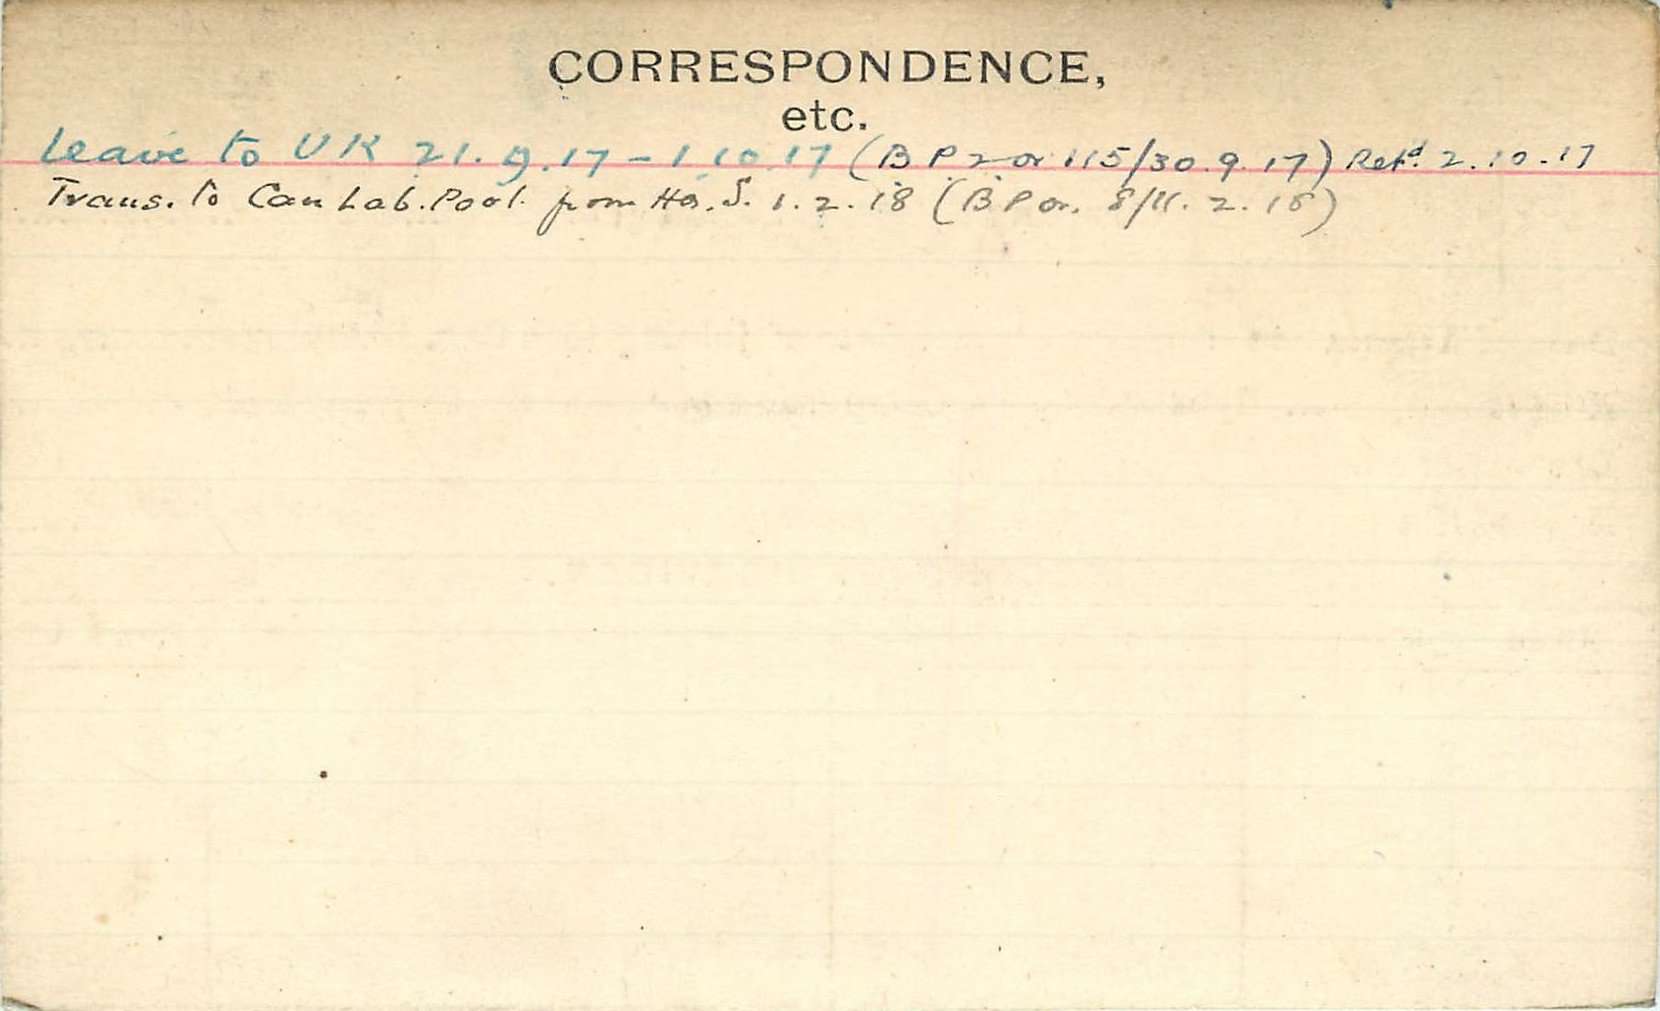 CORRESPONDENCE,
etc.
Leave to UK 21.9.17 - 1.10.17 (B P 2 or 115/30.9.17) Ret'd. 2.10.17
Trans. to Can Lab. Pool. from Hq. S. 1.2.18 (B P or. 8/11.2.18)